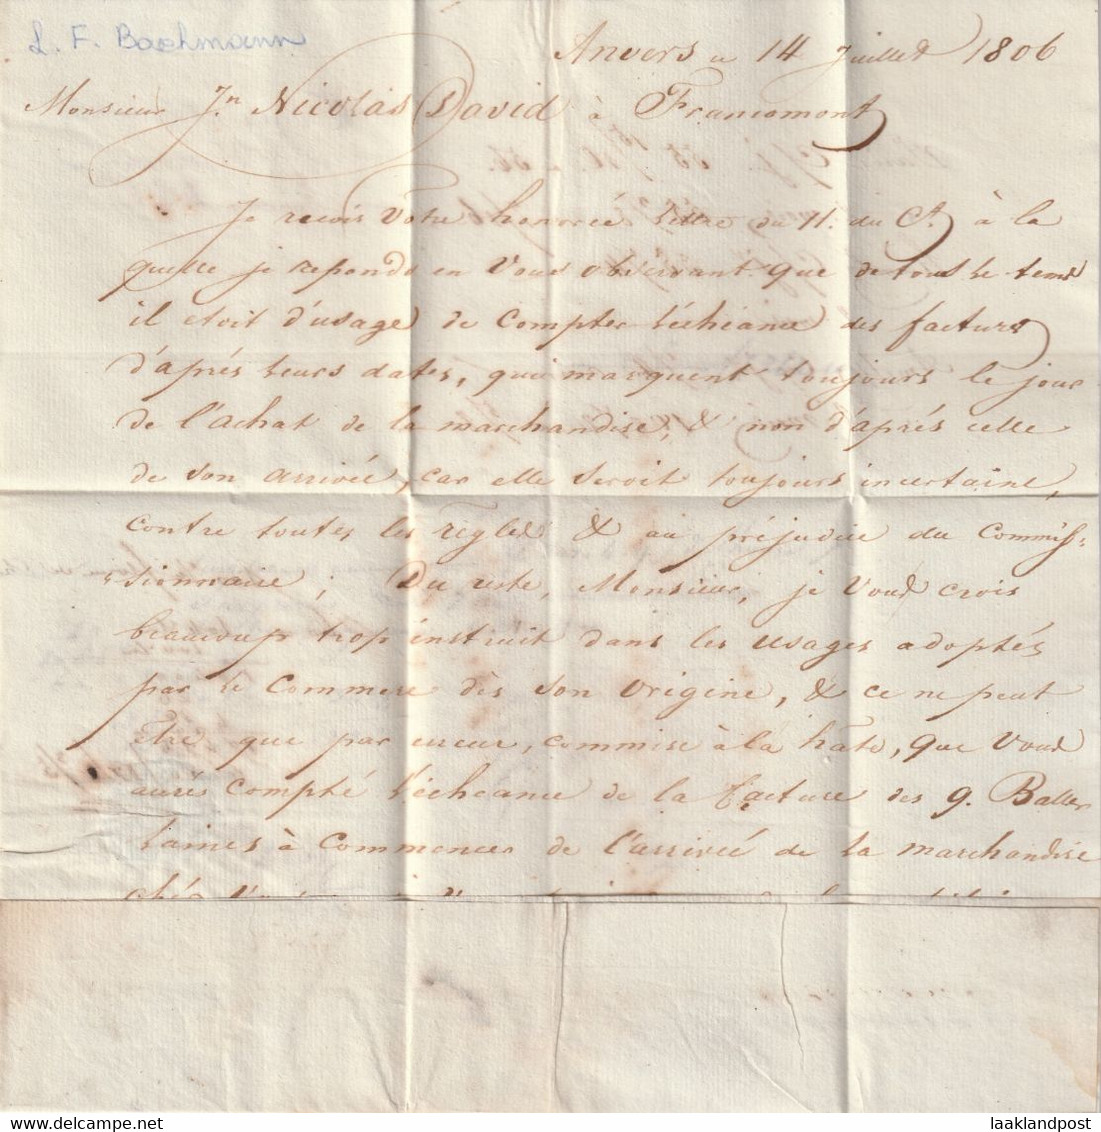 L. F. Bachmann
Anvers ce 14 Juillet 1806
Monsieur Jn. Nicolas David à Francomont
Je recois Votre honnorée lettre du 11. du Ct. à la
quelle je reponds en Vous observant que de tous le tems
il etoit d'usage de Compter l'échéance des factures
d'aprés leurs dates, qui marquent toujours le jour
de l'achat de la marchandise, & non d'aprés celle
de son arrivée, car elle seroit toujours incertaine,
contre toutes les régles & au préjudice du Commis-
sionnaire; Du reste, Monsieur, je Vous crois
beaucoup trop instruit dans les Usages adoptés
par le Commerce dès son Origine, & ce ne peut
etre que par erreur, commise à la hate, que Vous
aurés Compté l'échéance de la facture des 9. Balles
laines à Commencer de l'arrivée de la marchandise
chés
laaklandpost